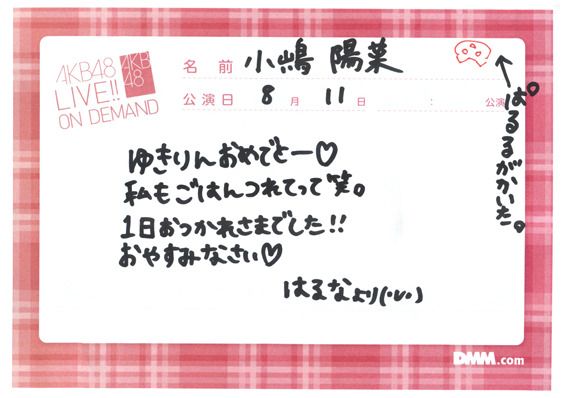 AKB48
LIVE!!
ON DEMAND
AKB
48
名前 小嶋 陽菜
公演日 8月11日 : 公演
ぱるるがかいた。
ゆきりんおめでとー♡
私もごはんつれてって笑。
1日おつかれさまでした!!
おやすみなさい♡
はるなより(・v・)
DMM.com